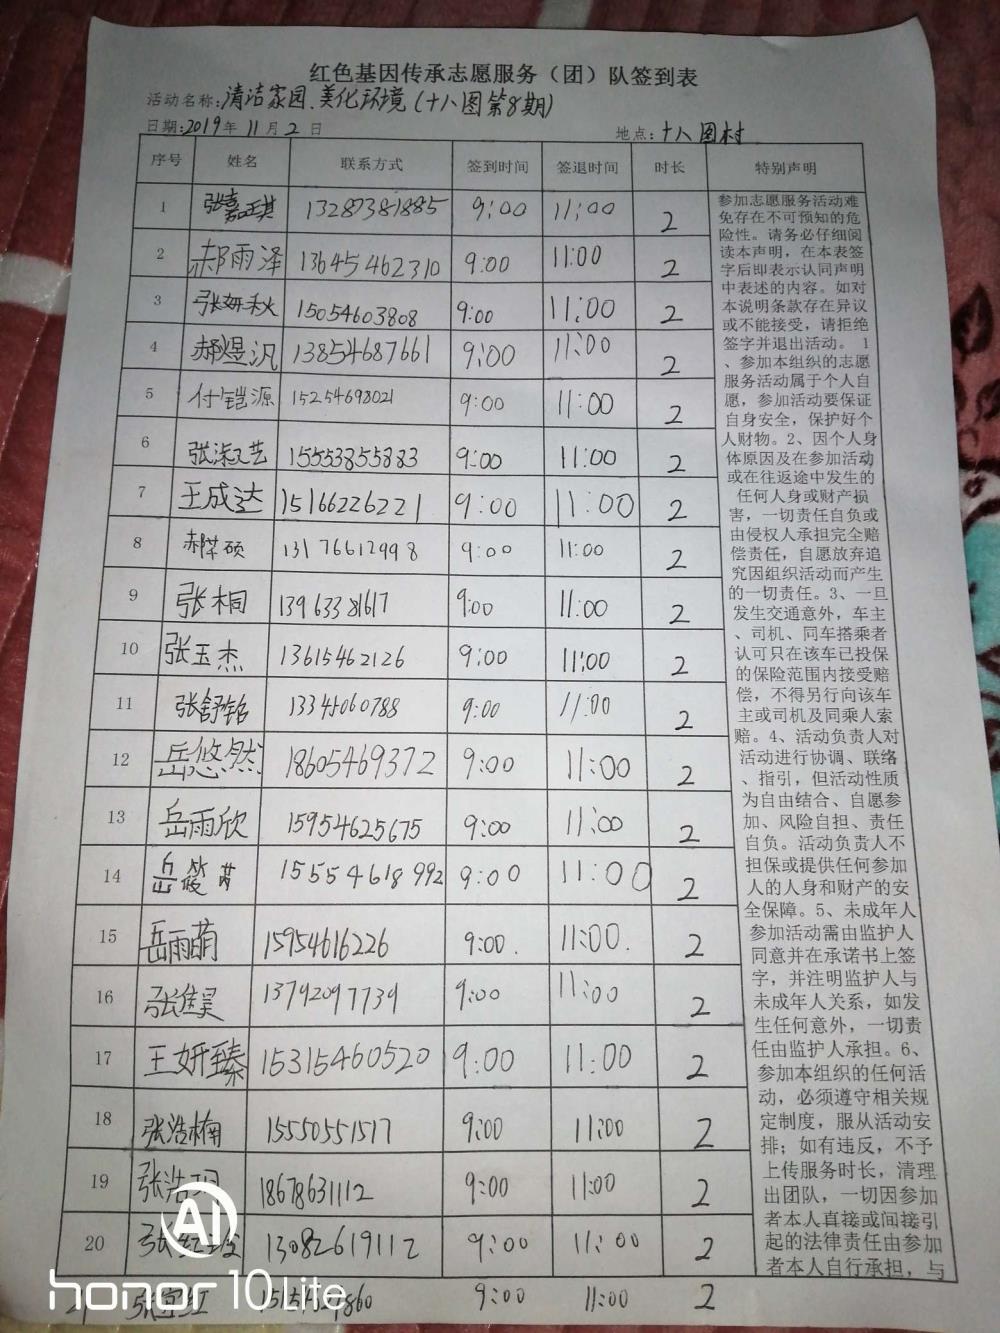 红色基因传承志愿服务（团）队签到表
活动名称：清洁家园、美化环境（十八图第8期）
日期：2019年11月2日 地点：十八图村
序号 姓名 联系方式 签到时间 签退时间 时长 特别声明
1 张嘉琪 13287381885 9:00 11:00 2
2 郝雨泽 13645462310 9:00 11:00 2
3 张妍秋 15054603808 9:00 11:00 2
4 郝煜汎 13854687661 9:00 11:00 2
5 付铠源 15254698021 9:00 11:00 2
6 张淏艺 15553855883 9:00 11:00 2
7 王成达 15166226221 9:00 11:00 2
8 郝荣硕 13176612998 9:00 11:00 2
9 张桐 13963381617 9:00 11:00 2
10 张玉杰 13615462126 9:00 11:00 2
11 张舒铭 13345060788 9:00 11:00 2
12 岳悠然 18605469372 9:00 11:00 2
13 岳雨欣 15954625675 9:00 11:00 2
14 岳筱 15554618992 9:00 11:00 2
15 岳雨萌 15954616226 9:00. 11:00. 2
16 张 昊 13792097739 9:00 11:00 2
17 王妍臻 15315460520 9:00 11:00 2
18 张浩楠 15550551517 9:00 11:00 2
19 张浩 18678631112 9:00 11:00 2
20 张 13082619112 9:00 11:00 2
张 红 9:00 11:00 2
参加志愿服务活动难
免存在不可预知的危
险性。请务必仔细阅
读本声明，在本表签
字后即表示认同声明
中表述的内容。如对
本说明条款存在异议
或不能接受，请拒绝
签字并退出活动。 1
、参加本组织的志愿
服务活动属于个人自
愿，参加活动要保证
自身安全，保护好个
人财物。2、因个人身
体原因及在参加活动
或在往返途中发生的
任何人身或财产损
害，一切责任自负或
由侵权人承担完全赔
偿责任，自愿放弃追
究因组织活动而产生
的一切责任。3、一旦
发生交通意外，车主
、司机、同车搭乘者
认可只在该车已投保
的保险范围内接受赔
偿，不得另行向该车
主或司机及同乘人索
赔。4、活动负责人对
活动进行协调、联络
、指引，但活动性质
为自由结合、自愿参
加、风险自担、责任
自负。活动负责人不
担保或提供任何参加
人的人身和财产的安
全保障。5、未成年人
参加活动需由监护人
同意并在承诺书上签
字，并注明监护人与
未成年人关系，如发
生任何意外，一切责
任由监护人承担。6、
参加本组织的任何活
动，必须遵守相关规
定制度，服从活动安
排；如有违反，不予
上传服务时长，清理
出团队，一切因参加
者本人直接或间接引
起的法律责任由参加
者本人自行承担，与
AI
honor 10 Lite